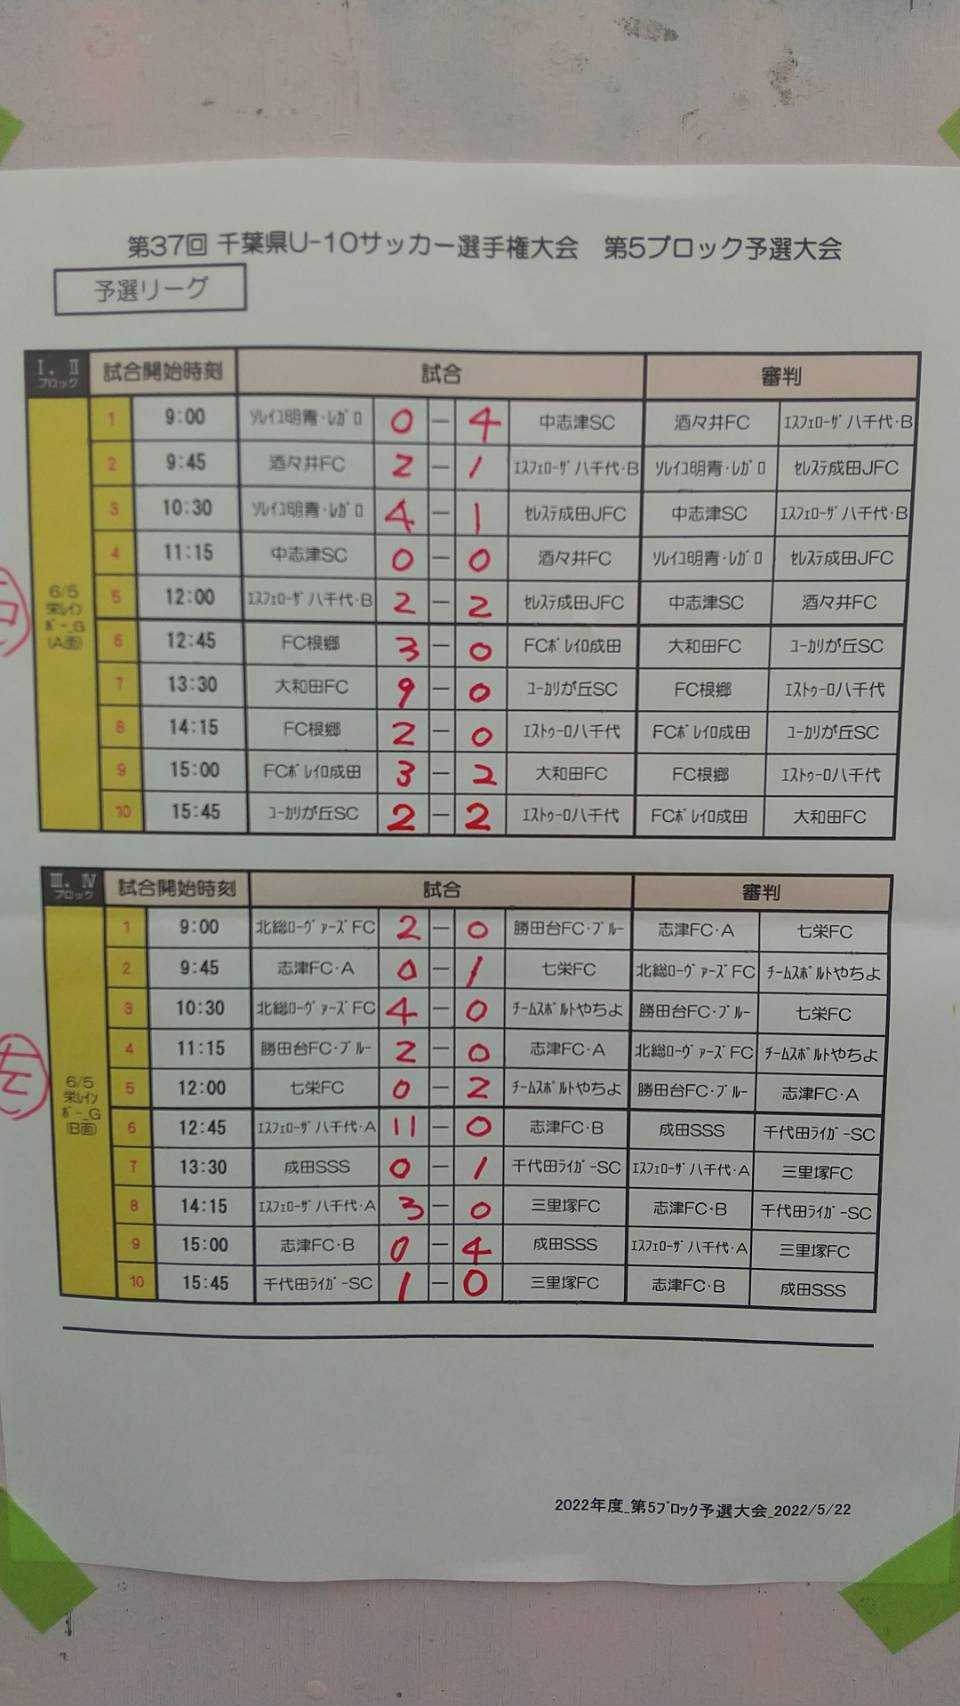 第37回 千葉県U-10サッカー選手権大会 第5ブロック予選大会
予選リーグ
Ⅰ．Ⅱ ブロック 試合開始時刻 試合 審判
6/5 栄ﾚｲﾝﾎﾞｰ_G (A面)
1 9:00 ｿﾚｲﾕ明青･ﾚｶﾞﾛ 0 - 4 中志津SC 酒々井FC ｴｽﾌｪﾛｰｻﾞ八千代･B
2 9:45 酒々井FC 2 - 1 ｴｽﾌｪﾛｰｻﾞ八千代･B ｿﾚｲﾕ明青･ﾚｶﾞﾛ ｾﾚｽﾃ成田JFC
3 10:30 ｿﾚｲﾕ明青･ﾚｶﾞﾛ 4 - 1 ｾﾚｽﾃ成田JFC 中志津SC ｴｽﾌｪﾛｰｻﾞ八千代･B
4 11:15 中志津SC 0 - 0 酒々井FC ｿﾚｲﾕ明青･ﾚｶﾞﾛ ｾﾚｽﾃ成田JFC
5 12:00 ｴｽﾌｪﾛｰｻﾞ八千代･B 2 - 2 ｾﾚｽﾃ成田JFC 中志津SC 酒々井FC
6 12:45 FC根郷 3 - 0 FCﾎﾞﾚｲﾛ成田 大和田FC ﾕｰｶﾘが丘SC
7 13:30 大和田FC 9 - 0 ﾕｰｶﾘが丘SC FC根郷 ｴｽﾄｩｰﾛ八千代
8 14:15 FC根郷 2 - 0 ｴｽﾄｩｰﾛ八千代 FCﾎﾞﾚｲﾛ成田 ﾕｰｶﾘが丘SC
9 15:00 FCﾎﾞﾚｲﾛ成田 3 - 2 大和田FC FC根郷 ｴｽﾄｩｰﾛ八千代
10 15:45 ﾕｰｶﾘが丘SC 2 - 2 ｴｽﾄｩｰﾛ八千代 FCﾎﾞﾚｲﾛ成田 大和田FC
Ⅲ．Ⅳ ブロック 試合開始時刻 試合 審判
6/5 栄ﾚｲﾝﾎﾞｰ_G (B面)
1 9:00 北総ﾛｰｳﾞｧｰｽﾞFC 2 - 0 勝田台FC･ﾌﾞﾙｰ 志津FC･A 七栄FC
2 9:45 志津FC･A 0 - 1 七栄FC 北総ﾛｰｳﾞｧｰｽﾞFC ﾁｰﾑｽﾎﾟﾙﾄやちよ
3 10:30 北総ﾛｰｳﾞｧｰｽﾞFC 4 - 0 ﾁｰﾑｽﾎﾟﾙﾄやちよ 勝田台FC･ﾌﾞﾙｰ 七栄FC
4 11:15 勝田台FC･ﾌﾞﾙｰ 2 - 0 志津FC･A 北総ﾛｰｳﾞｧｰｽﾞFC ﾁｰﾑｽﾎﾟﾙﾄやちよ
5 12:00 七栄FC 0 - 2 ﾁｰﾑｽﾎﾟﾙﾄやちよ 勝田台FC･ﾌﾞﾙｰ 志津FC･A
6 12:45 ｴｽﾌｪﾛｰｻﾞ八千代･A 11 - 0 志津FC･B 成田SSS 千代田ﾗｲｶﾞｰSC
7 13:30 成田SSS 0 - 1 千代田ﾗｲｶﾞｰSC ｴｽﾌｪﾛｰｻﾞ八千代･A 三里塚FC
8 14:15 ｴｽﾌｪﾛｰｻﾞ八千代･A 3 - 0 三里塚FC 志津FC･B 千代田ﾗｲｶﾞｰSC
9 15:00 志津FC･B 0 - 4 成田SSS ｴｽﾌｪﾛｰｻﾞ八千代･A 三里塚FC
10 15:45 千代田ﾗｲｶﾞｰSC 1 - 0 三里塚FC 志津FC･B 成田SSS
2022年度_第5ﾌﾞﾛｯｸ予選大会_2022/5/22